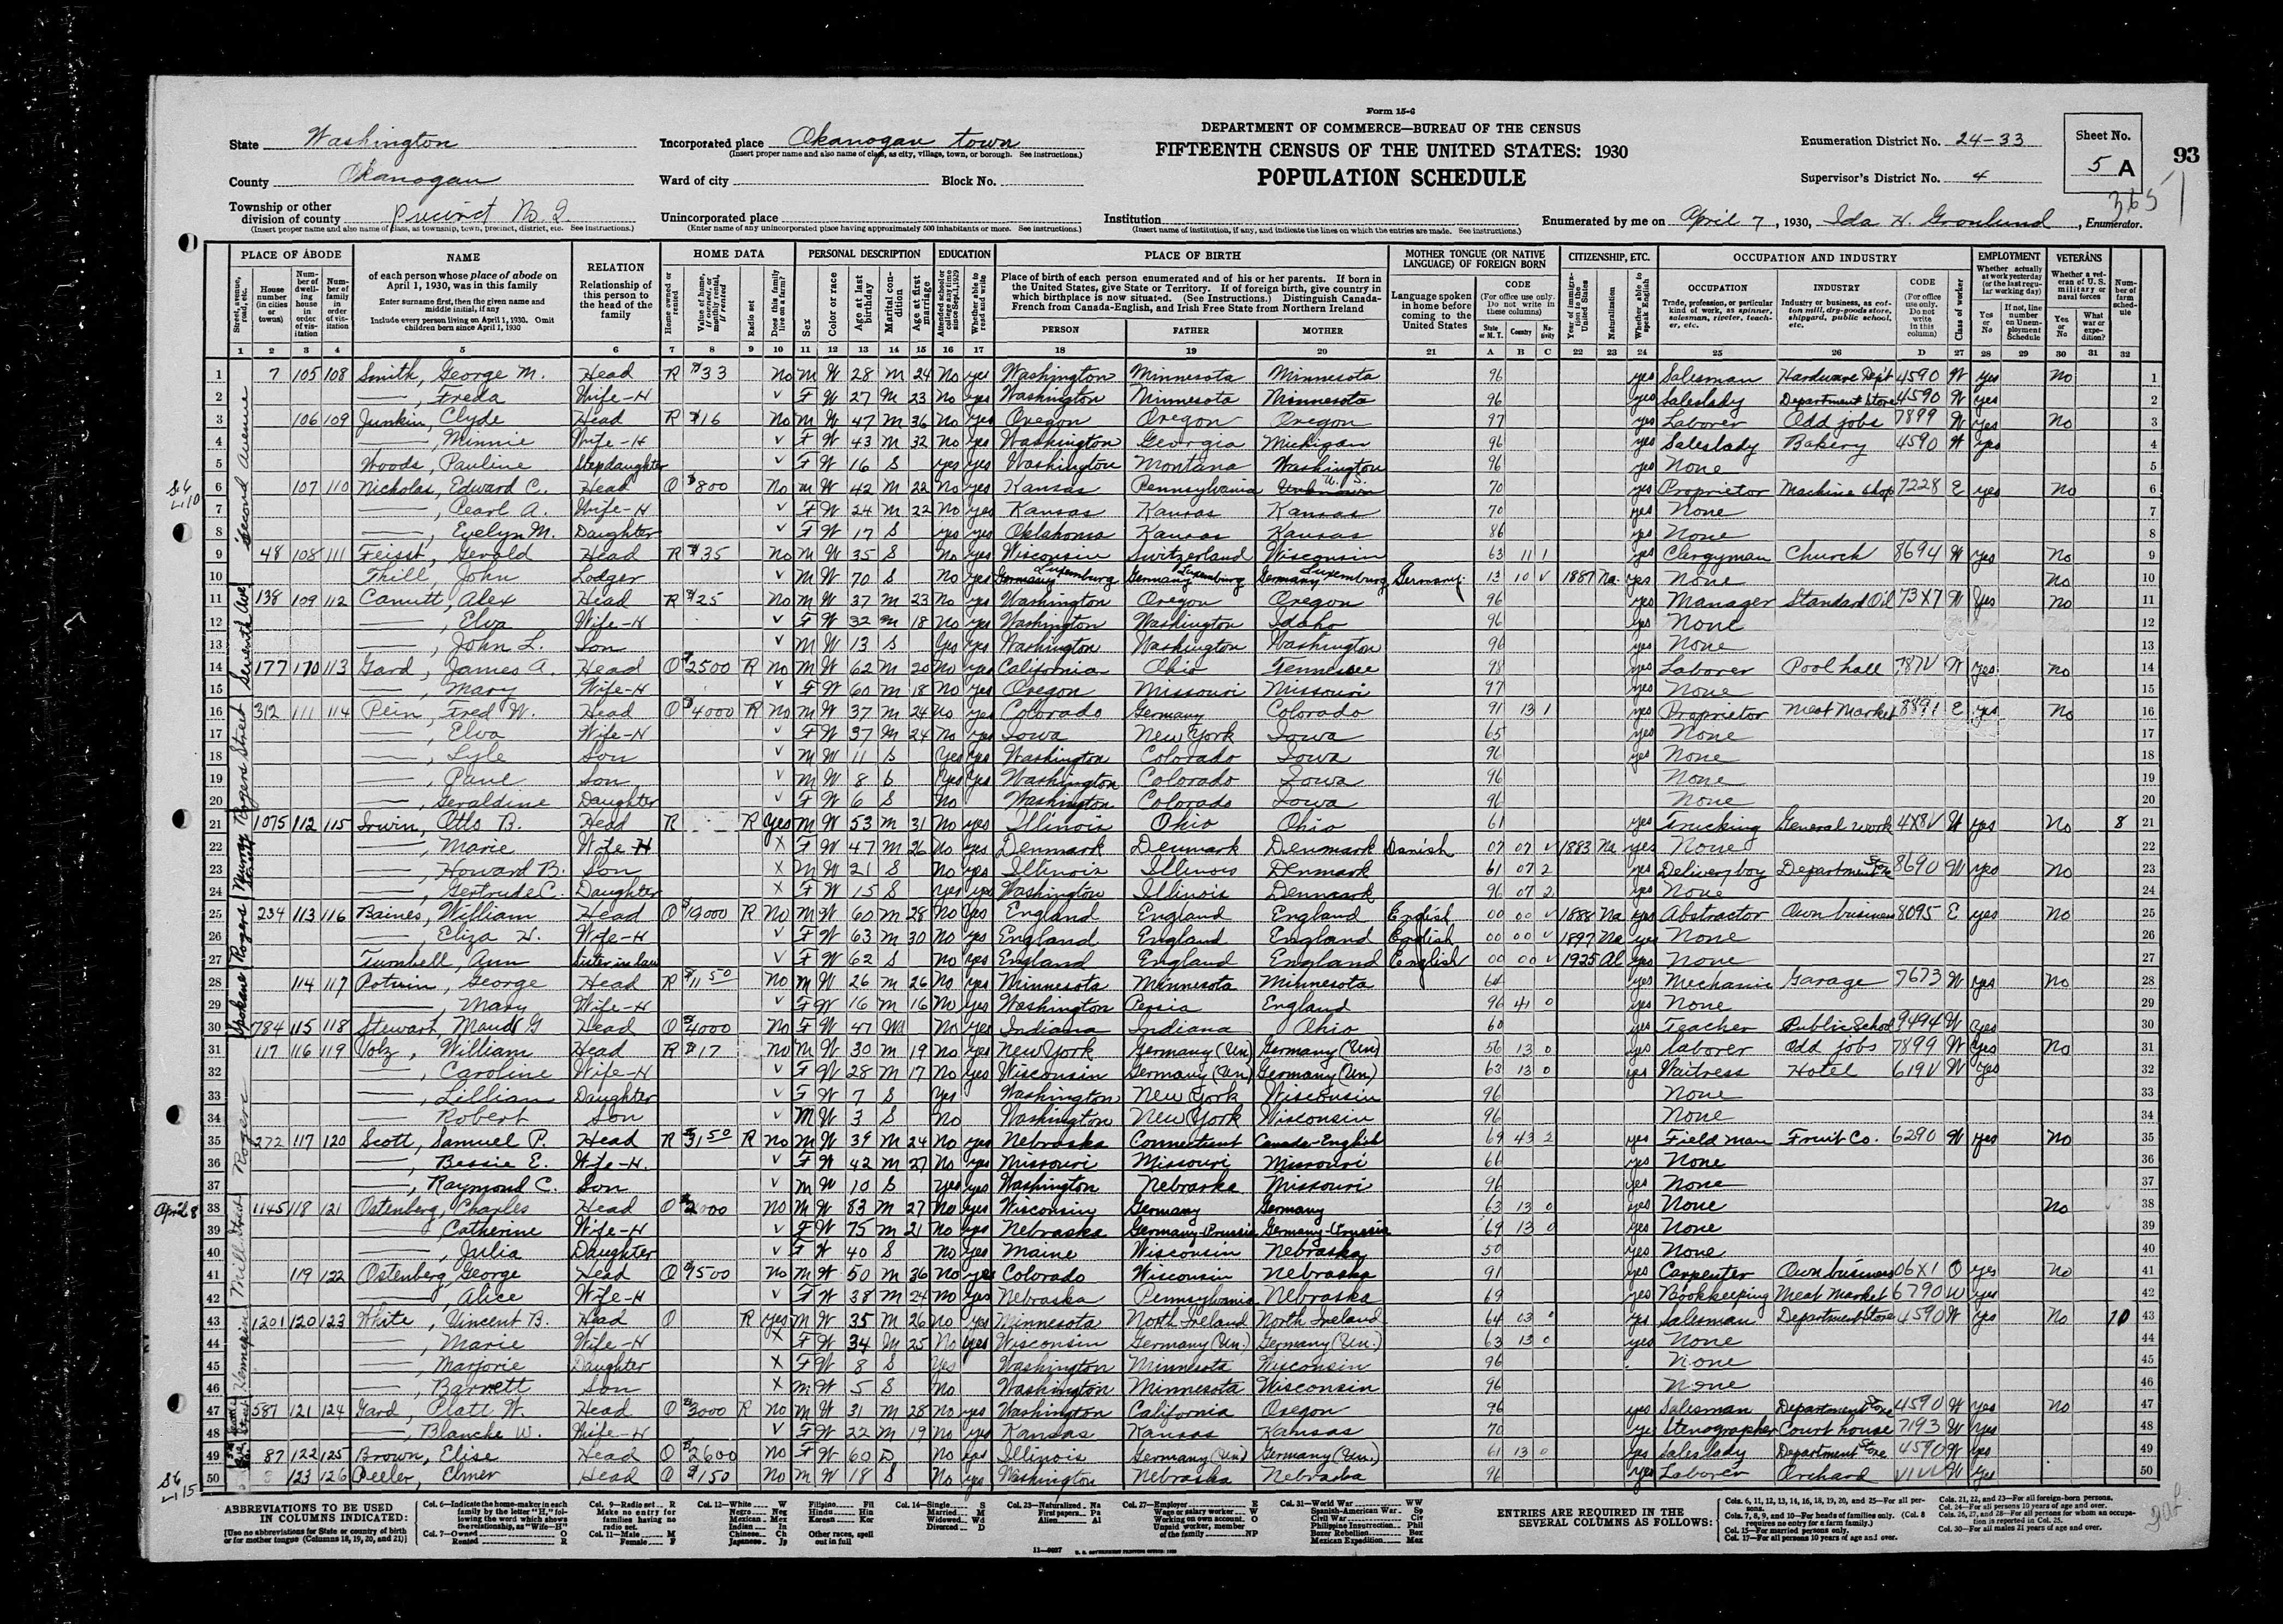 Form 15-6
DEPARTMENT OF COMMERCE—BUREAU OF THE CENSUS
FIFTEENTH CENSUS OF THE UNITED STATES: 1930
POPULATION SCHEDULE
State Washington
County Okanogan
Township or other division of county Precinct No. 2
(Insert proper name and also name of class, as township, town, precinct, district, etc. See instructions.)
Incorporated place Okanogan town
(Insert proper name and also name of class, as city, village, town, or borough. See instructions.)
Ward of city Block No.
Unincorporated place
(Enter name of any unincorporated place having approximately 500 inhabitants or more. See instructions.)
Institution
(Insert name of institution, if any, and indicate the lines on which the entries are made. See instructions.)
Enumeration District No. 24-33
Supervisor's District No. 4
Sheet No. 5 A
93
365
Enumerated by me on April 7, 1930, Ida H. Gronlund, Enumerator.
PLACE OF ABODE NAME RELATION HOME DATA PERSONAL DESCRIPTION EDUCATION PLACE OF BIRTH MOTHER TONGUE (OR NATIVE LANGUAGE) OF FOREIGN BORN CITIZENSHIP, ETC. OCCUPATION AND INDUSTRY EMPLOYMENT VETERANS
of each person whose place of abode on April 1, 1930, was in this family
Enter surname first, then the given name and middle initial, if any
Include every person living on April 1, 1930. Omit children born since April 1, 1930
Relationship of this person to the head of the family
Place of birth of each person enumerated and of his or her parents. If born in the United States, give State or Territory. If of foreign birth, give country in which birthplace is now situated. (See Instructions.) Distinguish Canada-French from Canada-English, and Irish Free State from Northern Ireland
PERSON FATHER MOTHER
1 2 3 4 5 6 7 8 9 10 11 12 13 14 15 16 17 18 19 20 21 A B C 22 23 24 25 26 D 27 28 29 30 31 32
1 7 105 108 Smith, George M. Head R $33 No M W 28 M 24 No yes Washington Minnesota Minnesota 96 yes Salesman Hardware Dept 4590 W yes No 1
2 —, Freda Wife-H V F W 27 M 23 No yes Washington Minnesota Minnesota 96 yes Saleslady Department Store 4590 W yes 2
3 106 109 Junkin, Clyde Head R $16 No M W 47 M 36 No yes Oregon Oregon Oregon 97 yes Laborer Odd jobs 7899 W yes No 3
4 —, Minnie Wife-H V F W 43 M 32 No yes Washington Georgia Michigan 96 yes Saleslady Bakery 4590 W yes 4
5 Woods, Pauline Stepdaughter V F W 16 S yes yes Washington Montana Washington 96 yes None 5
6 107 110 Nicholas, Edward C. Head O $800 No M W 42 M 22 No yes Kansas Pennsylvania U. S. 70 yes Proprietor Machine shop 7228 E yes No 6
7 —, Pearl A. Wife-H V F W 24 M 22 No yes Kansas Kansas Kansas 70 yes None 7
8 —, Evelyn M. Daughter V F W 17 S yes yes Oklahoma Kansas Kansas 86 yes None 8
9 48 108 111 Feisst, Gerald Head R $35 No M W 35 S No yes Wisconsin Switzerland Wisconsin 63 11 1 yes Clergyman Church 8694 W yes No 9
10 Thill, John Lodger V M W 70 S No yes Germany Luxemburg Germany Luxemburg Germany Luxemburg Germany 13 10 V 1887 Na yes None No 10
11 138 109 112 Camutt, Alex Head R $25 No M W 37 M 23 No yes Washington Oregon Oregon 96 yes Manager Standard Oil 73X7 W yes No 11
12 —, Elva Wife-H V F W 32 M 18 No yes Washington Washington Idaho 96 yes None 12
13 —, John L. Son V M W 13 S Yes yes Washington Washington Washington 96 yes None 13
14 177 170 113 Gard, James A. Head O $2500 R No M W 62 M 20 No yes California Ohio Tennessee 98 yes Laborer Pool hall 787V W Yes No 14
15 —, Mary Wife-H V F W 60 M 18 No yes Oregon Missouri Missouri 97 yes None 15
16 312 111 114 Pein, Fred W. Head O $4000 R No M W 37 M 24 No yes Colorado Germany Colorado 91 13 1 yes Proprietor Meat Market 8891 E yes No 16
17 —, Elva Wife-H V F W 37 M 24 No yes Iowa New York Iowa 65 yes None 17
18 —, Lyle Son V M W 11 S Yes yes Washington Colorado Iowa 96 yes None 18
19 —, Paul Son V M W 8 S Yes yes Washington Colorado Iowa 96 None 19
20 —, Geraldine Daughter V F W 6 S No Washington Colorado Iowa 96 None 20
21 1075 112 115 Irwin, Otto B. Head R R Yes M W 53 M 31 No yes Illinois Ohio Ohio 61 yes Trucking General work 4X8V W yes No 8 21
22 —, Marie Wife-H X F W 47 M 26 No yes Denmark Denmark Denmark Danish 07 07 V 1883 Na yes None 22
23 —, Howard B. Son X M W 21 S No yes Illinois Illinois Denmark 61 07 2 yes Delivery boy Department Store 8690 W yes No 23
24 —, Gertrude C. Daughter X F W 15 S yes yes Washington Illinois Denmark 96 07 2 yes None 24
25 234 113 116 Baines, William Head O $19000 R No M W 60 M 28 No yes England England England English 00 00 V 1888 Na yes Abstractor Own business 8095 E yes No 25
26 —, Eliza H. Wife-H V F W 63 M 30 No yes England England England English 00 00 V 1897 Na yes None 26
27 Turnbell, Ann Sister in law V F W 62 S No yes England England England English 00 00 V 1925 Al yes None 27
28 114 117 Potvin, George Head R $11.50 No M W 26 M 26 No yes Minnesota Minnesota Minnesota 64 yes Mechanic Garage 7673 W yes No 28
29 —, Mary Wife-H V F W 16 M 16 No yes Washington Persia England 96 41 0 yes None 29
30 784 115 118 Stewart, Maud G Head O $4000 No F W 47 Wd No yes Indiana Indiana Ohio 60 yes Teacher Public School 9494 W yes 30
31 117 116 119 Volz, William Head R $17 No M W 30 M 19 No yes New York Germany (Un) Germany (Un) 56 13 0 yes Laborer Odd jobs 7899 W yes No 31
32 —, Caroline Wife-H V F W 28 M 17 No yes Wisconsin Germany (Un) Germany (Un) 63 13 0 yes Waitress Hotel 619V W yes 32
33 —, Lillian Daughter V F W 7 S Yes Washington New York Wisconsin 96 None 33
34 — Robert Son V M W 3 S No Washington New York Wisconsin 96 None 34
35 272 117 120 Scott, Samuel P. Head R $31.50 R No M W 39 M 24 No yes Nebraska Connecticut Canada-English 69 43 2 yes Field man Fruit Co. 6290 W yes No 35
36 —, Bessie E. Wife-H. V F W 42 M 27 No yes Missouri Missouri Missouri 66 yes None 36
37 —, Raymond C. Son V M W 10 S Yes yes Washington Nebraska Missouri 96 yes None 37
April 8 38 1145 118 121 Ostenberg, Charles Head O $2000 No M W 83 M 27 No yes Wisconsin Germany Germany 63 13 0 yes None No 38
39 — Catherine Wife-H V F W 75 M 21 No yes Nebraska Germany-Prussia Germany-Prussia 69 13 0 yes None 39
40 —, Julia Daughter V F W 40 S No yes Maine Wisconsin Nebraska 50 yes None 40
41 119 122 Ostenberg, George Head O $1500 No M W 50 M 36 No yes Colorado Wisconsin Nebraska 91 yes Carpenter Own business 06X1 O yes No 41
42 —, Alice Wife-H V F W 38 M 24 No yes Nebraska Pennsylvania Nebraska 69 yes Bookkeeping Meat Market 6790 W yes 42
43 1201 120 123 White, Vincent B. Head O R yes M W 35 M 26 No yes Minnesota North Ireland North Ireland 64 03 0 yes Salesman Department Store 4590 W yes No 10 43
44 —, Marie Wife-H X F W 34 M 25 No yes Wisconsin Germany (Un.) Germany (Un.) 63 13 0 yes None 44
45 —, Marjorie Daughter X F W 8 S Yes Washington Minnesota Wisconsin 96 None 45
46 —, Barnett Son X M W 5 S No Washington Minnesota Wisconsin 96 None 46
47 587 121 124 Gard, Platt W. Head O $3000 R No M W 31 M 28 No yes Washington California Oregon 96 yes Salesman Department Store 4590 W yes No 47
48 —, Blanche W. Wife-H V F W 22 M 19 No yes Kansas Kansas Kansas 70 yes Stenographer Court house 7193 W yes 48
49 87 122 125 Brown, Elise Head O $2600 No F W 60 D No yes Illinois Germany (Un) Germany (Un.) 61 13 0 yes Saleslady Department Store 4590 W yes 49
50 123 126 Peeler, Elmer Head O $150 No M W 18 S No yes Washington Nebraska Nebraska 96 yes Laborer Orchard VIVV W yes 50
Second Avenue
Seventh Ave
Rogers Street
Murray Street
Rogers
Spokane
Rogers
Mill Street
Hennepin
ABBREVIATIONS TO BE USED IN COLUMNS INDICATED:
[Use no abbreviations for State or country of birth or for mother tongue (Columns 18, 19, 20, and 21)]
ENTRIES ARE REQUIRED IN THE SEVERAL COLUMNS AS FOLLOWS:
11—9027 U. S. GOVERNMENT PRINTING OFFICE: 1930